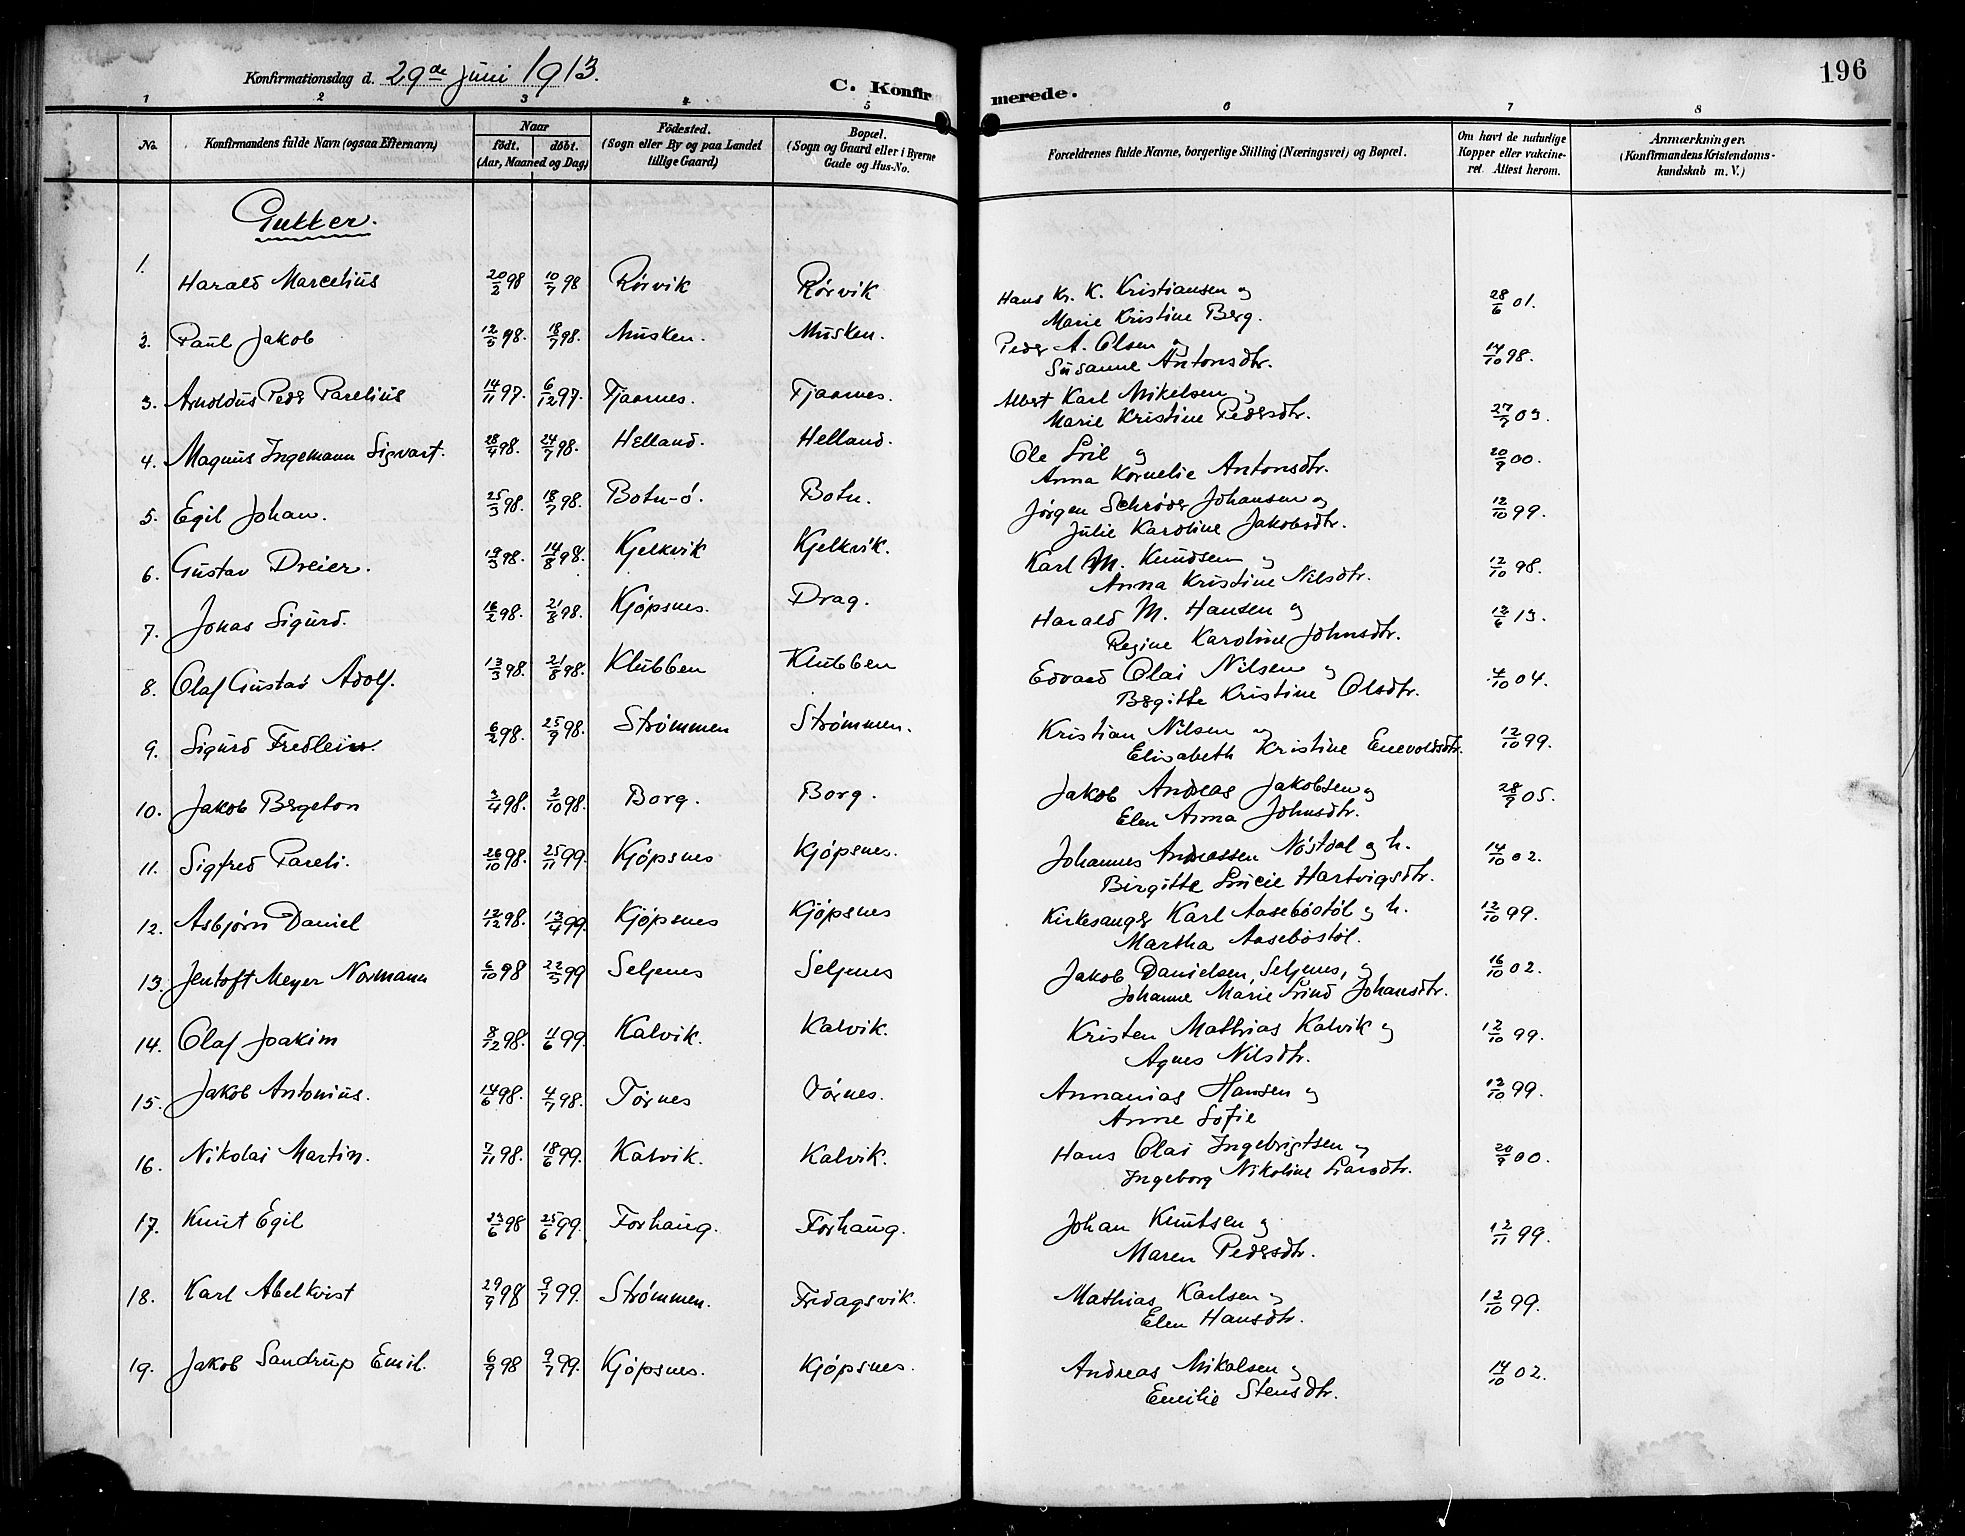 196
Konfirmationsdag d. 29de juni 1913.
C. Konfirmerede.
1 2 3 4 5 6 7 8
No.
Konfirmandens fulde Navn (ogsaa Efternavn)
Naar
født. døbt.
(Aar, Maaned og Dag)
Fødested.
(Sogn eller By og paa Landet
tillige Gaard)
Bopæl.
(Sogn og Gaard eller i Byerne
Gade og Hus-No.
Forældrenes fulde Navne, borgerlige Stilling (Næringsvei) og Bopæl.
Om havt de naturlige
Kopper eller vakcine-
ret. Attest herom.
Anmærkninger.
(Konfirmandens Kristendoms-
kundskab m. V.)
Gutter.
1. Harald Marcelius 20/2 98 10/7 98 Rørvik Rørvik Hans Kr. K. Kristiansen og 28/6 01.
Marie Kristine Berg.
2. Paul Jakob 12/5 98. 18/7 98. Musken. Musken. Peder A. Olsen og 14/10 98.
Susanne Antonsdtr.
3. Arnoldus Peder Parelius 14/11 97. 6/12 97. Tjaarnes. Tjaarnes. Albert Karl Mikelsen og 27/7 03.
Marie Kristine Pedersdtr.
4. Magnus Ingemann Sigvart. 28/4 98. 24/7 98. Helland. Helland. Ole og 20/9 00.
Anna Kornelie Antonsdtr.
5. Egil Johan. 25/3 98. 18/7 98. Botn-ø. Botn. Jørgen Schrøder Johansen og 12/10 99.
Julie Karoline Jakobsdtr.
6. Gustav Dreier. 19/3 98. 14/8 98. Kjelkvik Kjelkvik. Karl M. Knudsen og 12/10 98.
Anna Kristine Nilsdtr.
7. Jonas Sigurd. 16/2 98. 21/8 98. Kjøpsnes. Drag. Harald M. Hansen og 13/6 13.
Regine Karoline Johnsdtr.
8. Olaf Gustav Adolf. 13/3 98. 21/8 98. Klubben Klubben Edvard Olai Nilsen og 4/10 04.
Bergitte Kristine Olsdtr.
9. Sigurd Fredlein 6/2 98. 25/9 98. Strømmen Strømmen. Kristian Nilsen og 12/10 99.
Elisabeth Kristine Enevoldsdtr.
10. Jakob Bergeton 3/4 98. 2/10 98. Borg. Borg. Jakob Andreas Jakobsen og 28/9 05.
Elen Anna Johnsdtr.
11. Sigfred Pareli. 26/10 98. 25/11 99. Kjøpsnes Kjøpsnes. Johannes Andreassen Nøstdal og h. 14/10 02.
Birgitte Lucie Hartvigsdtr.
12. Asbjørn Daniel 12/12 98. 13/4 99 Kjøpsnes Kjøpsnes Kirkesanger Karl Aasebøstøl og h. 12/10 99.
Martha Aasebøstøl.
13. Jentoft Meyer Normann 6/10 98 22/5 99 Seljenes Seljenes Jakob Danielsen, Seljenes, og 16/10 02.
Johanne Marie Lind Johansdtr.
14. Olaf Joakim 8/12 98. 4/6 99. Kalvik. Kalvik. Kristen Mathias Kalvik og 12/10 99.
Agnes Nilsdtr.
15. Jakob Antonius. 14/6 98. 4/7 98. Tørnes Tørnes. Annanias Hansen og 12/10 99.
Anne Sofie
16. Nikolai Martin. 7/11 98. 18/6 99. Kalvik. Kalvik. Hans Olai Ingebrigtsen og 20/9 00.
Ingeborg Nikoline Larsdtr.
17. Knut Egil 23/6 98 25/6 99. Forhaug. Forhaug. Johan Knutsen og 12/11 99.
Maren Pedersdtr.
18. Karl Abelkvist 29/9 98 9/7 99. Strømmen. Fredagsvik. Mathias Karlsen og 12/10 99.
Elen Hansdtr.
19. Jakob Sandrup Emil. 6/9 98 9/7 99. Kjøpsnes. Kjøpsnes. Andreas Mikalsen og 14/10 02.
Emilie Stensdtr.